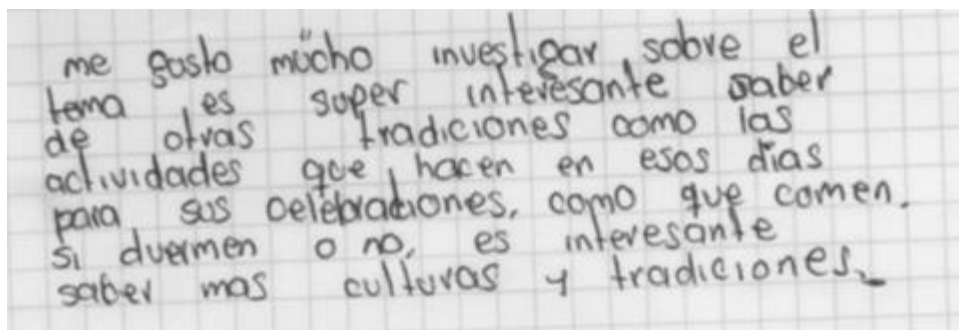 me gosto mücho investigar sobre el
tema, es super interesante saber
de otras tradiciones como las
actividades que hacen en esos días
para sus celebraciones, como que comen,
si duermen o no, es interesante
saber mas culturas y tradiciones.